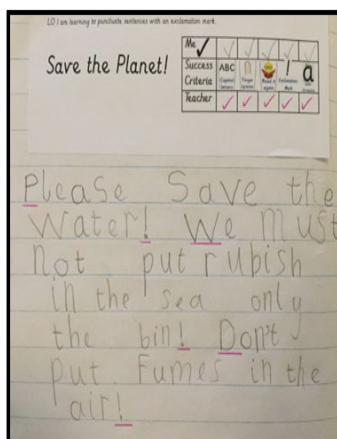 LO I am learning to punctuate sentences with an exclamation mark.
Save the Planet!
Me
Success Criteria
ABC
Capital letters
Finger spaces
Read it again
!
Exclamation Mark
a
Teacher
Please Save the
Water! We must
not put rubish
in the sea only
the bin! Don't
put Fumes in the
air!